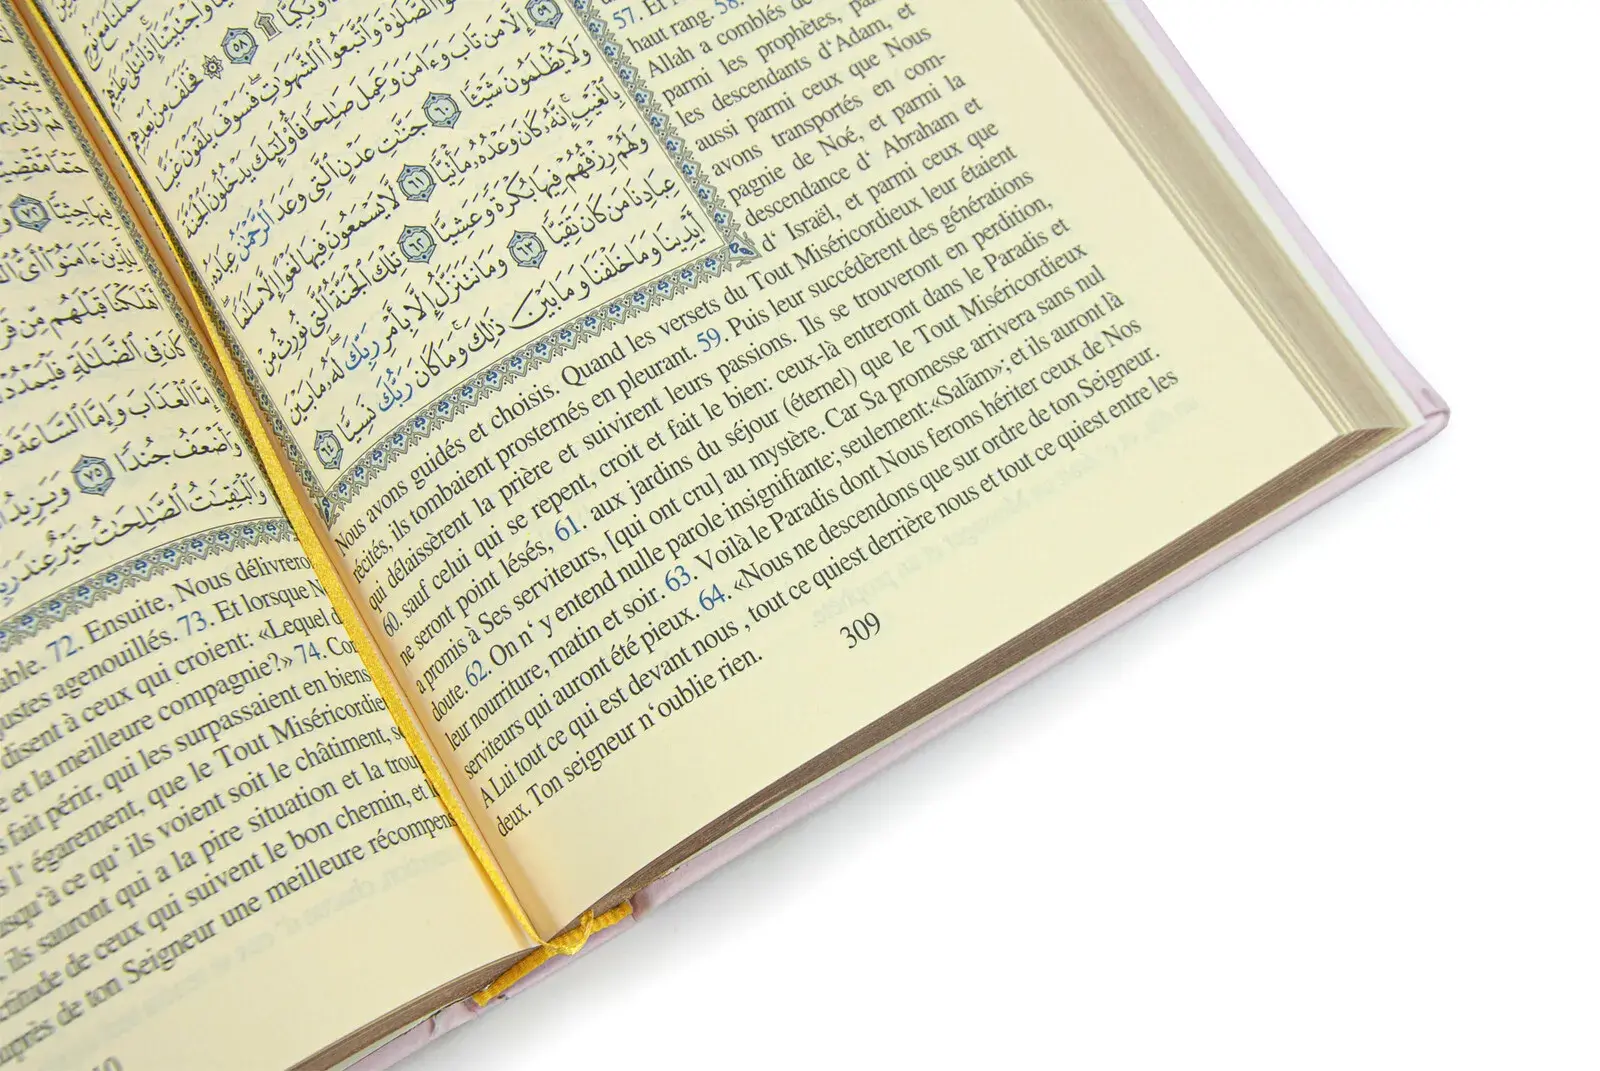 حملنا مع نوح
واجتبينا إذا تتلى عليهم
وَبُكِيًّا ۩ ٥٨ ۞ فَخَلَفَ مِنْ بَعْدِهِمْ
الصَّلَوٰةَ وَٱتَّبَعُوا۟ ٱلشَّهَوَٰتِ فَسَوْفَ يَلْقَوْنَ غَيًّا
٥٩ إِلَّا مَن تَابَ وَءَامَنَ وَعَمِلَ صَٰلِحًا فَأُو۟لَٰٓئِكَ يَدْخُلُونَ ٱلْجَنَّةَ
وَلَا يُظْلَمُونَ شَيْـًٔا ٦٠ جَنَّٰتِ عَدْنٍ ٱلَّتِى وَعَدَ ٱلرَّحْمَٰنُ عِبَادَهُۥ
بِٱلْغَيْبِ إِنَّهُۥ كَانَ وَعْدُهُۥ مَأْتِيًّا ٦١ لَّا يَسْمَعُونَ فِيهَا لَغْوًا إِلَّا سَلَٰمًا
وَلَهُمْ رِزْقُهُمْ فِيهَا بُكْرَةً وَعَشِيًّا ٦٢ تِلْكَ ٱلْجَنَّةُ ٱلَّتِى نُورِثُ مِنْ
عِبَادِنَا مَن كَانَ تَقِيًّا ٦٣ وَمَا نَتَنَزَّلُ إِلَّا بِأَمْرِ رَبِّكَ لَهُۥ مَا بَيْنَ
أَيْدِينَا وَمَا خَلْفَنَا وَمَا بَيْنَ ذَٰلِكَ وَمَا كَانَ رَبُّكَ نَسِيًّا ٦٤
57. Et
haut rang. 58.
Allah a comblés de
parmi les prophètes, par-
les descendants d'Adam, et
aussi parmi ceux que Nous
avons transportés en com-
pagnie de Noé, et parmi la
descendance d' Abraham et
d' Israël, et parmi ceux que
Nous avons guidés et choisis. Quand les versets du Tout Miséricordieux leur étaient
récités, ils tombaient prosternés en pleurant. 59. Puis leur succédèrent des générations
qui délaissèrent la prière et suivirent leurs passions. Ils se trouveront en perdition,
60. sauf celui qui se repent, croit et fait le bien: ceux-là entreront dans le Paradis et
ne seront point lésés, 61. aux jardins du séjour (éternel) que le Tout Miséricordieux
a promis à Ses serviteurs, [qui ont cru] au mystère. Car Sa promesse arrivera sans nul
doute. 62. On n' y entend nulle parole insignifiante; seulement:«Salām»; et ils auront là
leur nourriture, matin et soir. 63. Voilà le Paradis dont Nous ferons hériter ceux de Nos
serviteurs qui auront été pieux. 64. «Nous ne descendons que sur ordre de ton Seigneur.
A Lui tout ce qui est devant nous , tout ce quiest derrière nous et tout ce quiest entre les
deux. Ton seigneur n'oublie rien.
309
حَتْمًا مَّقْضِيًّا
فِيهَا جِثِيًّا ٧٢
لِلَّذِينَ ءَامَنُوٓا۟ أَىُّ
أَهْلَكْنَا قَبْلَهُم مِّن
كَانَ فِى ٱلضَّلَٰلَةِ فَلْيَمْدُدْ
إِمَّا ٱلْعَذَابَ وَإِمَّا ٱلسَّاعَةَ
وَأَضْعَفُ جُندًا ٧٥ وَيَزِيدُ
وَٱلْبَٰقِيَٰتُ ٱلصَّٰلِحَٰتُ خَيْرٌ عِندَ
72. Ensuite, Nous délivrero
agenouillés. 73. Et lorsque
disent à ceux qui croient: «Lequel d
et la meilleure compagnie?» 74. Co
fait périr, qui les surpassaient en biens
l' égarement, que le Tout Miséricordie
à ce qu' ils voient soit le châtiment, s
ils sauront qui a la pire situation et la trou
de ceux qui suivent le bon chemin, et
de ton Seigneur une meilleure récompens